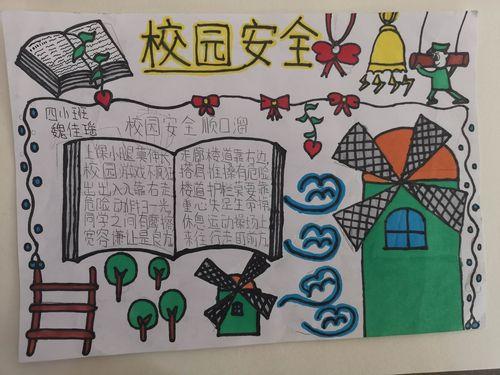 校园安全
四小班
魏佳瑶
校园安全顺口溜
上课小腿莫伸长
校园游戏不疯狂
出出入入靠右走
危险动作扫一光
同学之间有磨擦
宽容谦让是良方
走廊楼道靠右边
搭肩推搡有危险
楼道护栏莫要靠
重心失足生命抛
休息运动操场上
来往行走